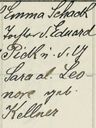 Emma Schadt
Tochter d. Eduard
Pick u. d.
Sara al. Leo-
nore geb.
Kellner